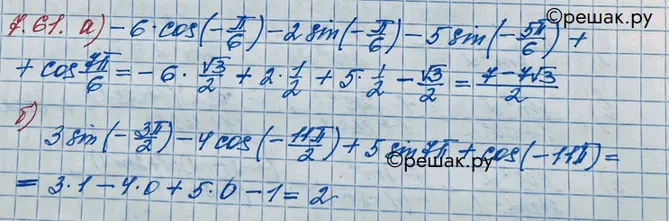 ©решак.ру
7.61. а) -6·cos(-π/6) - 2 sin(-π/6) - 5 sin(-5π/6) +
+ cos 7π/6 = -6·√3/2 + 2·1/2 + 5·1/2 - √3/2 = (7-7√3)/2
б)
3 sin(-3π/2) - 4 cos(-11π/2) + 5 sin 7π + cos(-11π) =
©решак.ру
= 3·1 - 4·0 + 5·0 - 1 = 2